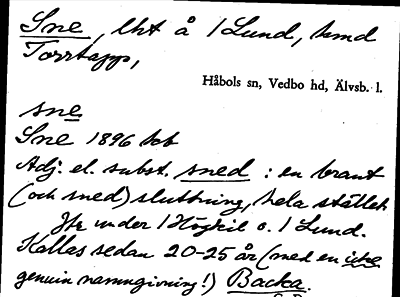 Sne, lht å 1 Lund, hmd
Torrtapp,
Håbols sn, Vedbo hd, Älvsb. l.
sne
Sne 1896 bcb
Adj. el. subst. sned : en brant
(och sned) sluttning, hela stället.
Hr under 1 Högkil o. 1 Lund.
Kallas sedan 20-25 år (med en icke
genuin namngivning!) Backa.